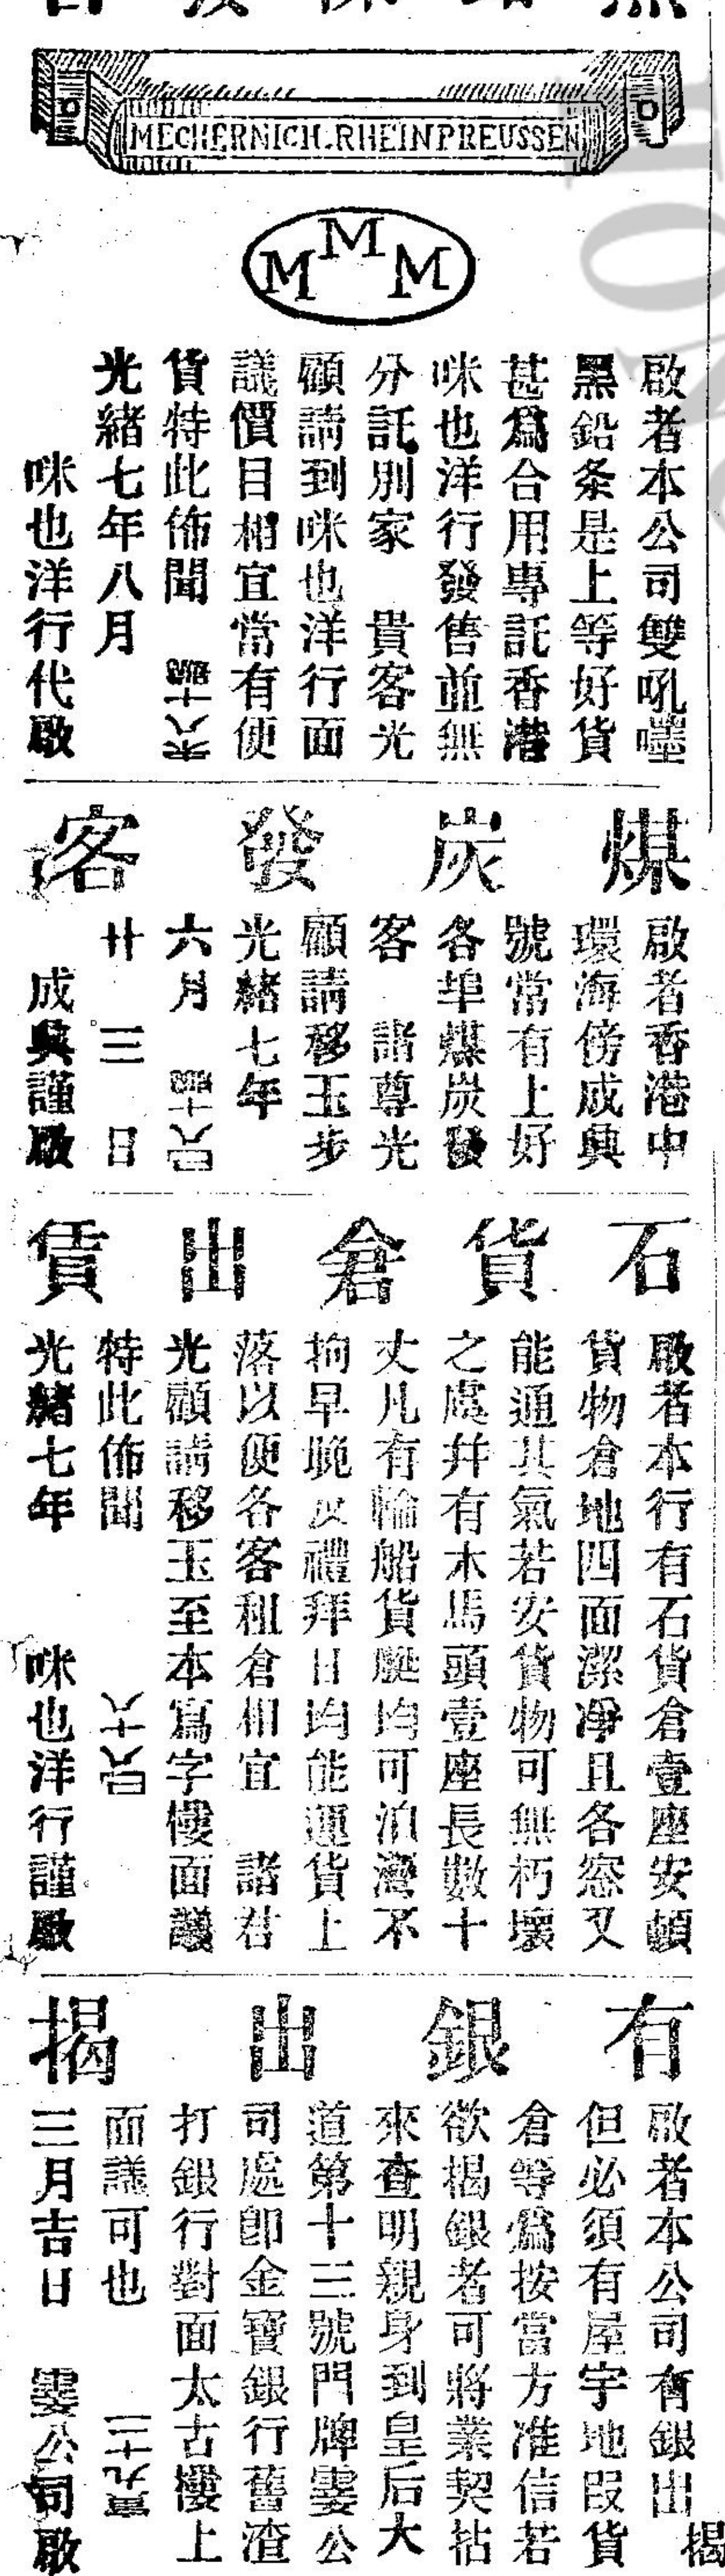 MECHERNICH.RHEINPREUSSEN
M M M
啟者本公司雙吼嚜
黑鉛条是上等好貨
甚爲合用專託香港
咪也洋行發售並無
分託別家　貴客光
顧請到咪也洋行面
議價目相宜常有便
貨特此佈聞
光緒七年八月
咪也洋行代啟
煤炭發客
啟者香港中
環海傍成興
號常有上好
各埠煤炭發
客　諸尊光
顧請移玉步
光緒七年
六月
廿三日
成興謹啟
石貨倉出賃
啟者本行有石貨倉壹座安頓
貨物倉地四面潔凈且各窓又
能通其氣若安貨物可無朽壞
之處并有木馬頭壹座長數十
丈凡有輪船貨艇均可泊灣不
拘早晚及禮拜日均能運貨上
落以便各客租倉相宜　諸君
光顧請移玉至本寫字樓面議
特此佈聞
光緒七年　咪也洋行謹啟
有銀出揭
啟者本公司有銀出揭
但必須有屋宇地叚貨
倉等爲按當方准信若
欲揭銀者可將業契拈
來查明親身到皇后大
道第十三號門牌霎公
司處卽金寶銀行舊渣
打銀行對面太古樓上
面議可也
三月吉日　霎公司啟